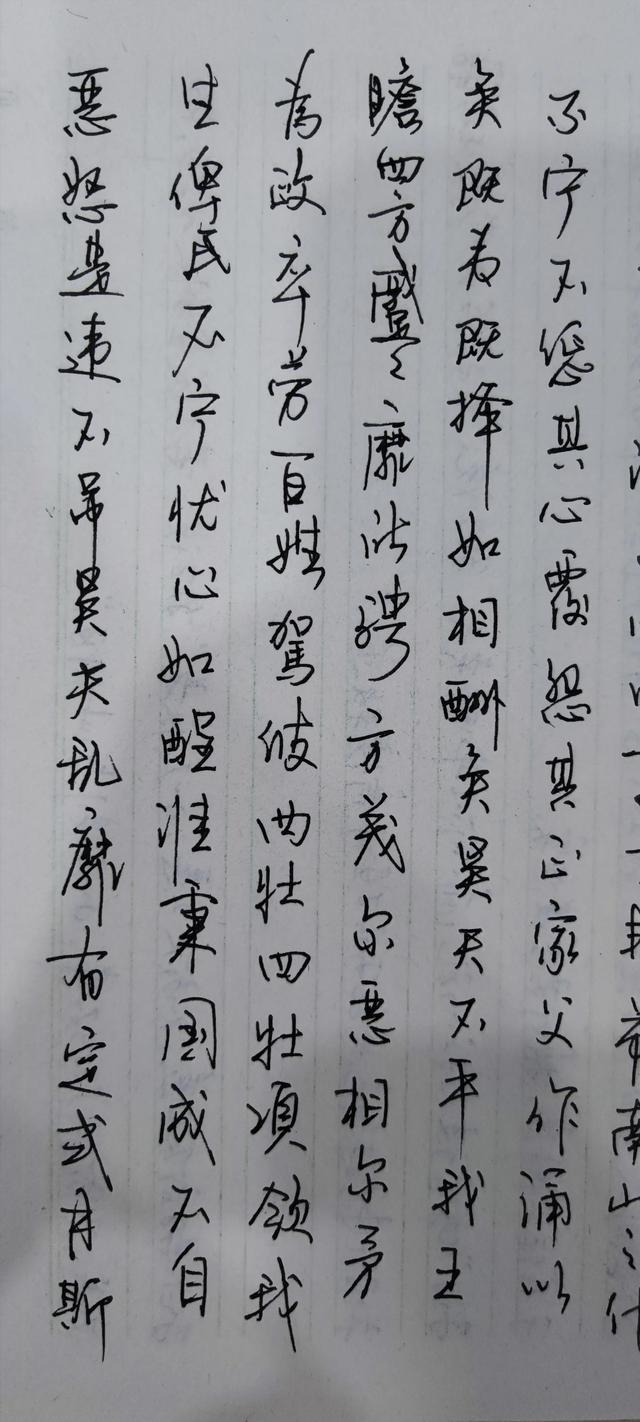 恶怒是违不吊昊天乱靡有定式月斯
生俾民不宁忧心如酲谁秉国成不自
為政卒劳百姓駕彼四牡四牡項领我
瞻四方蹙々靡所骋方茂尔恶相尔矛
矣既夷既怿如相酬矣昊天不平我王
不宁不惩其心覆怨其正家父作诵以
節南山之什